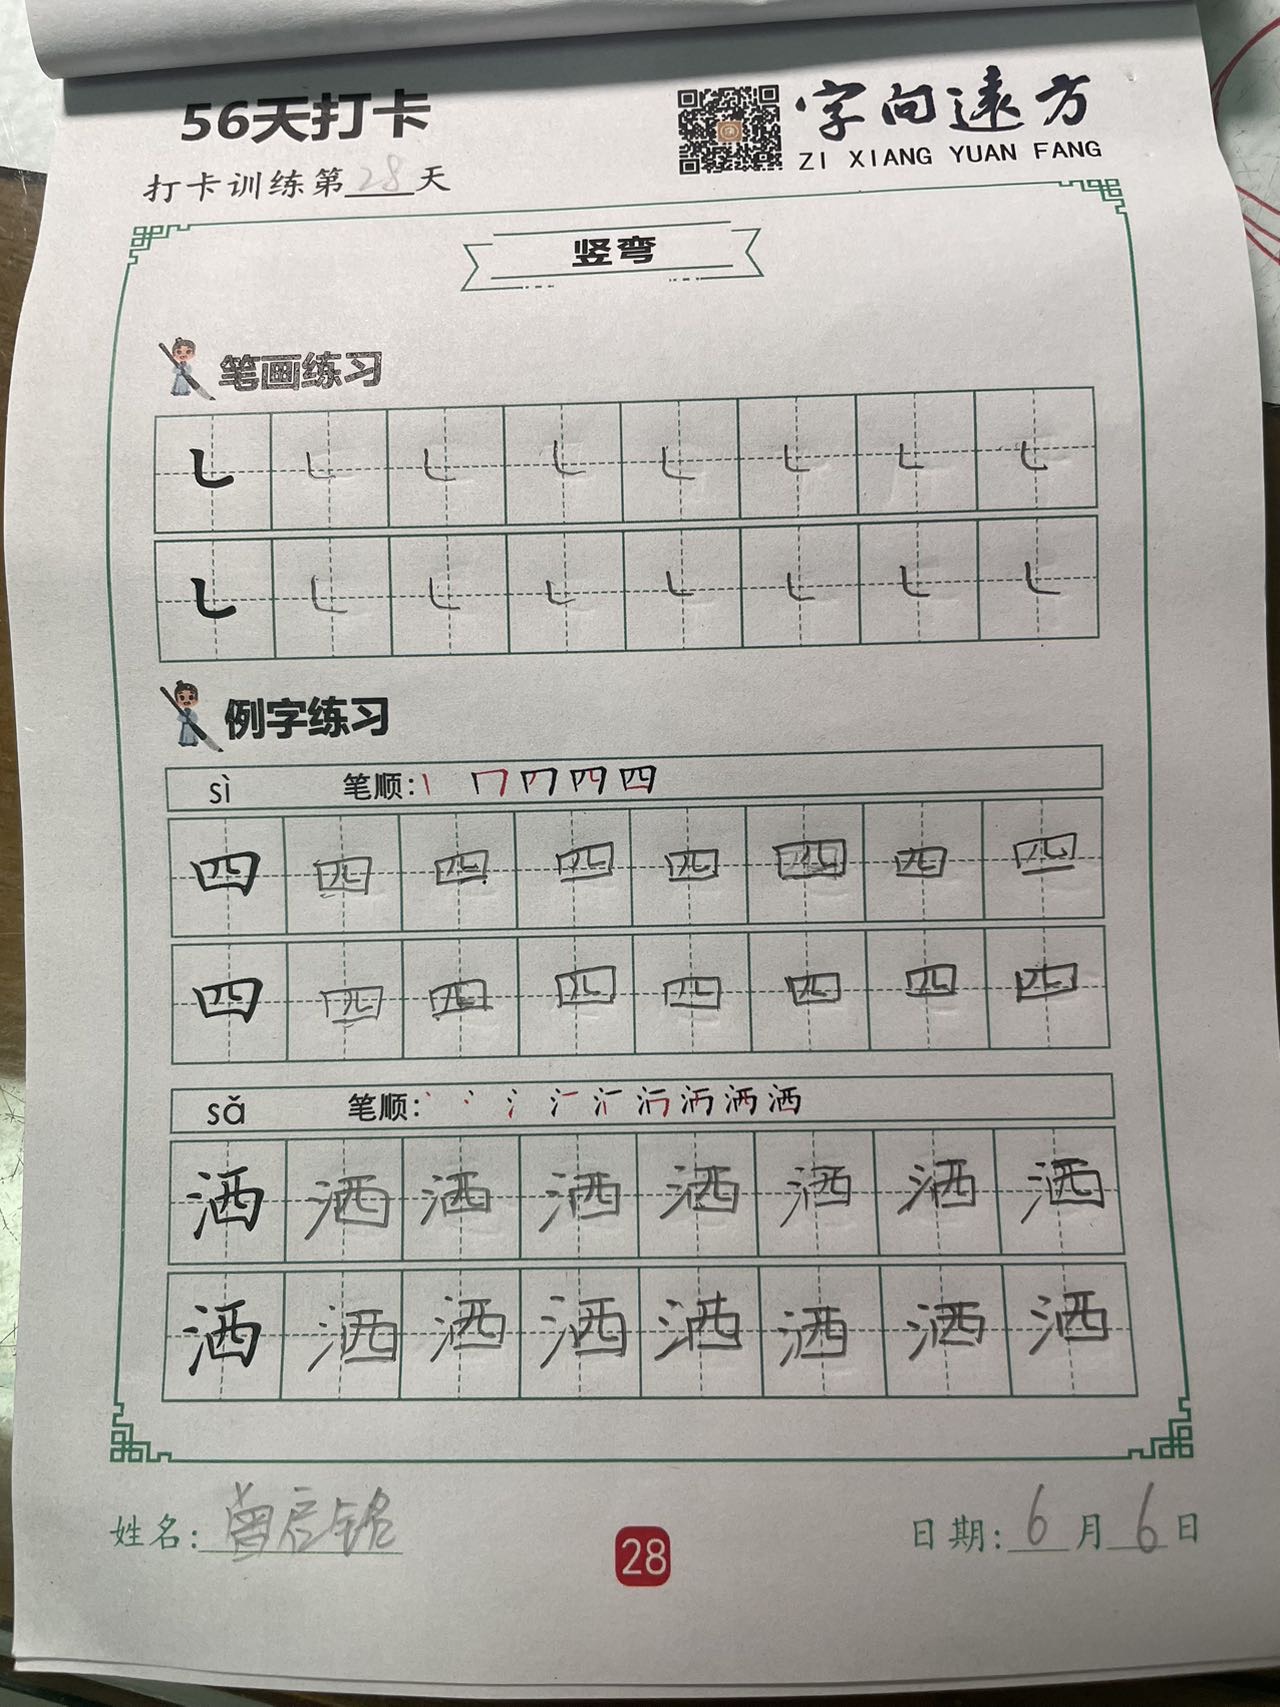 56天打卡
字向遠方
ZI XIANG YUAN FANG
打卡训练第28天
竖弯
笔画练习
㇄ ㇄ ㇄ ㇄ ㇄ ㇄ ㇄ ㇄
㇄ ㇄ ㇄ ㇄ ㇄ ㇄ ㇄ ㇄
例字练习
sì 笔顺:
四 四 四 四 四 四 四 四
四 四 四 四 四 四 四 四
sǎ 笔顺:
洒 洒 洒 洒 洒 洒 洒 洒
洒 洒 洒 洒 洒 洒 洒 洒
姓名:曾启铭
28
日期:6月6日